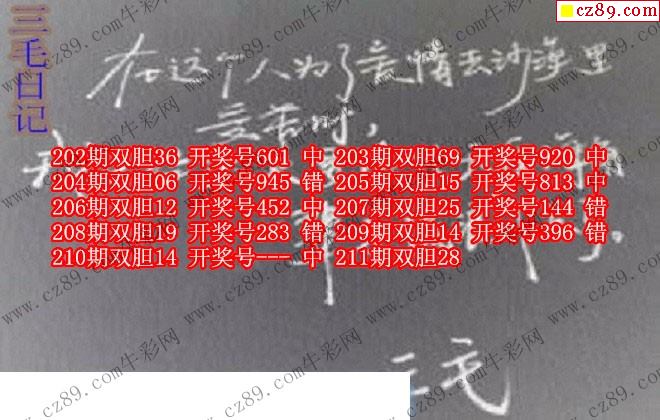 cz89.com
三毛日记
在这个人为了爱情去沙漠里
受苦时，
202期双胆36 开奖号601 中 203期双胆69 开奖号920 中
204期双胆06 开奖号945 错 205期双胆15 开奖号813 中
206期双胆12 开奖号452 中 207期双胆25 开奖号144 错
208期双胆19 开奖号283 错 209期双胆14 开奖号396 错
210期双胆14 开奖号--- 中 211期双胆28
三毛
www.cz89.com牛彩网